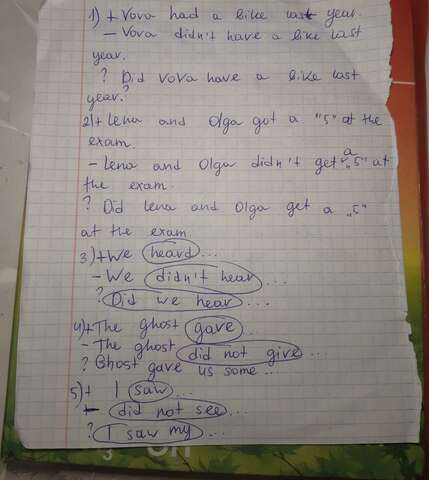 1) + Vova had a bike last year.
- Vova didn't have a bike last
year.
? Did Vova have a bike last
year?
2) + Lena and Olga got a "5" at the
exam.
- Lena and Olga didn't get a „5" at
the exam.
? Did Lena and Olga get a „5"
at the exam.
3) + We heard...
- We didn't hear...
? Did we hear ...
4) + The ghost gave...
- The ghost did not give ...
? Ghost gave us some ...
5) + I saw...
- did not see...
? I saw my ...